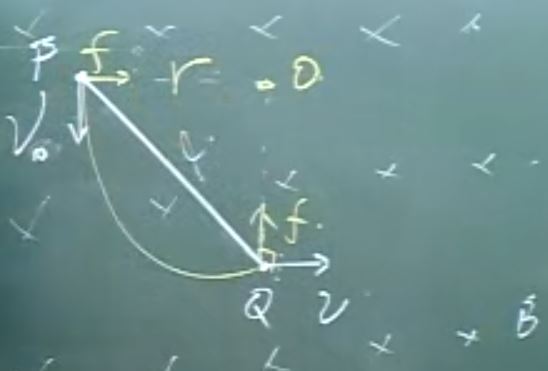 P f r . O
V₀ L
f.
Q v B